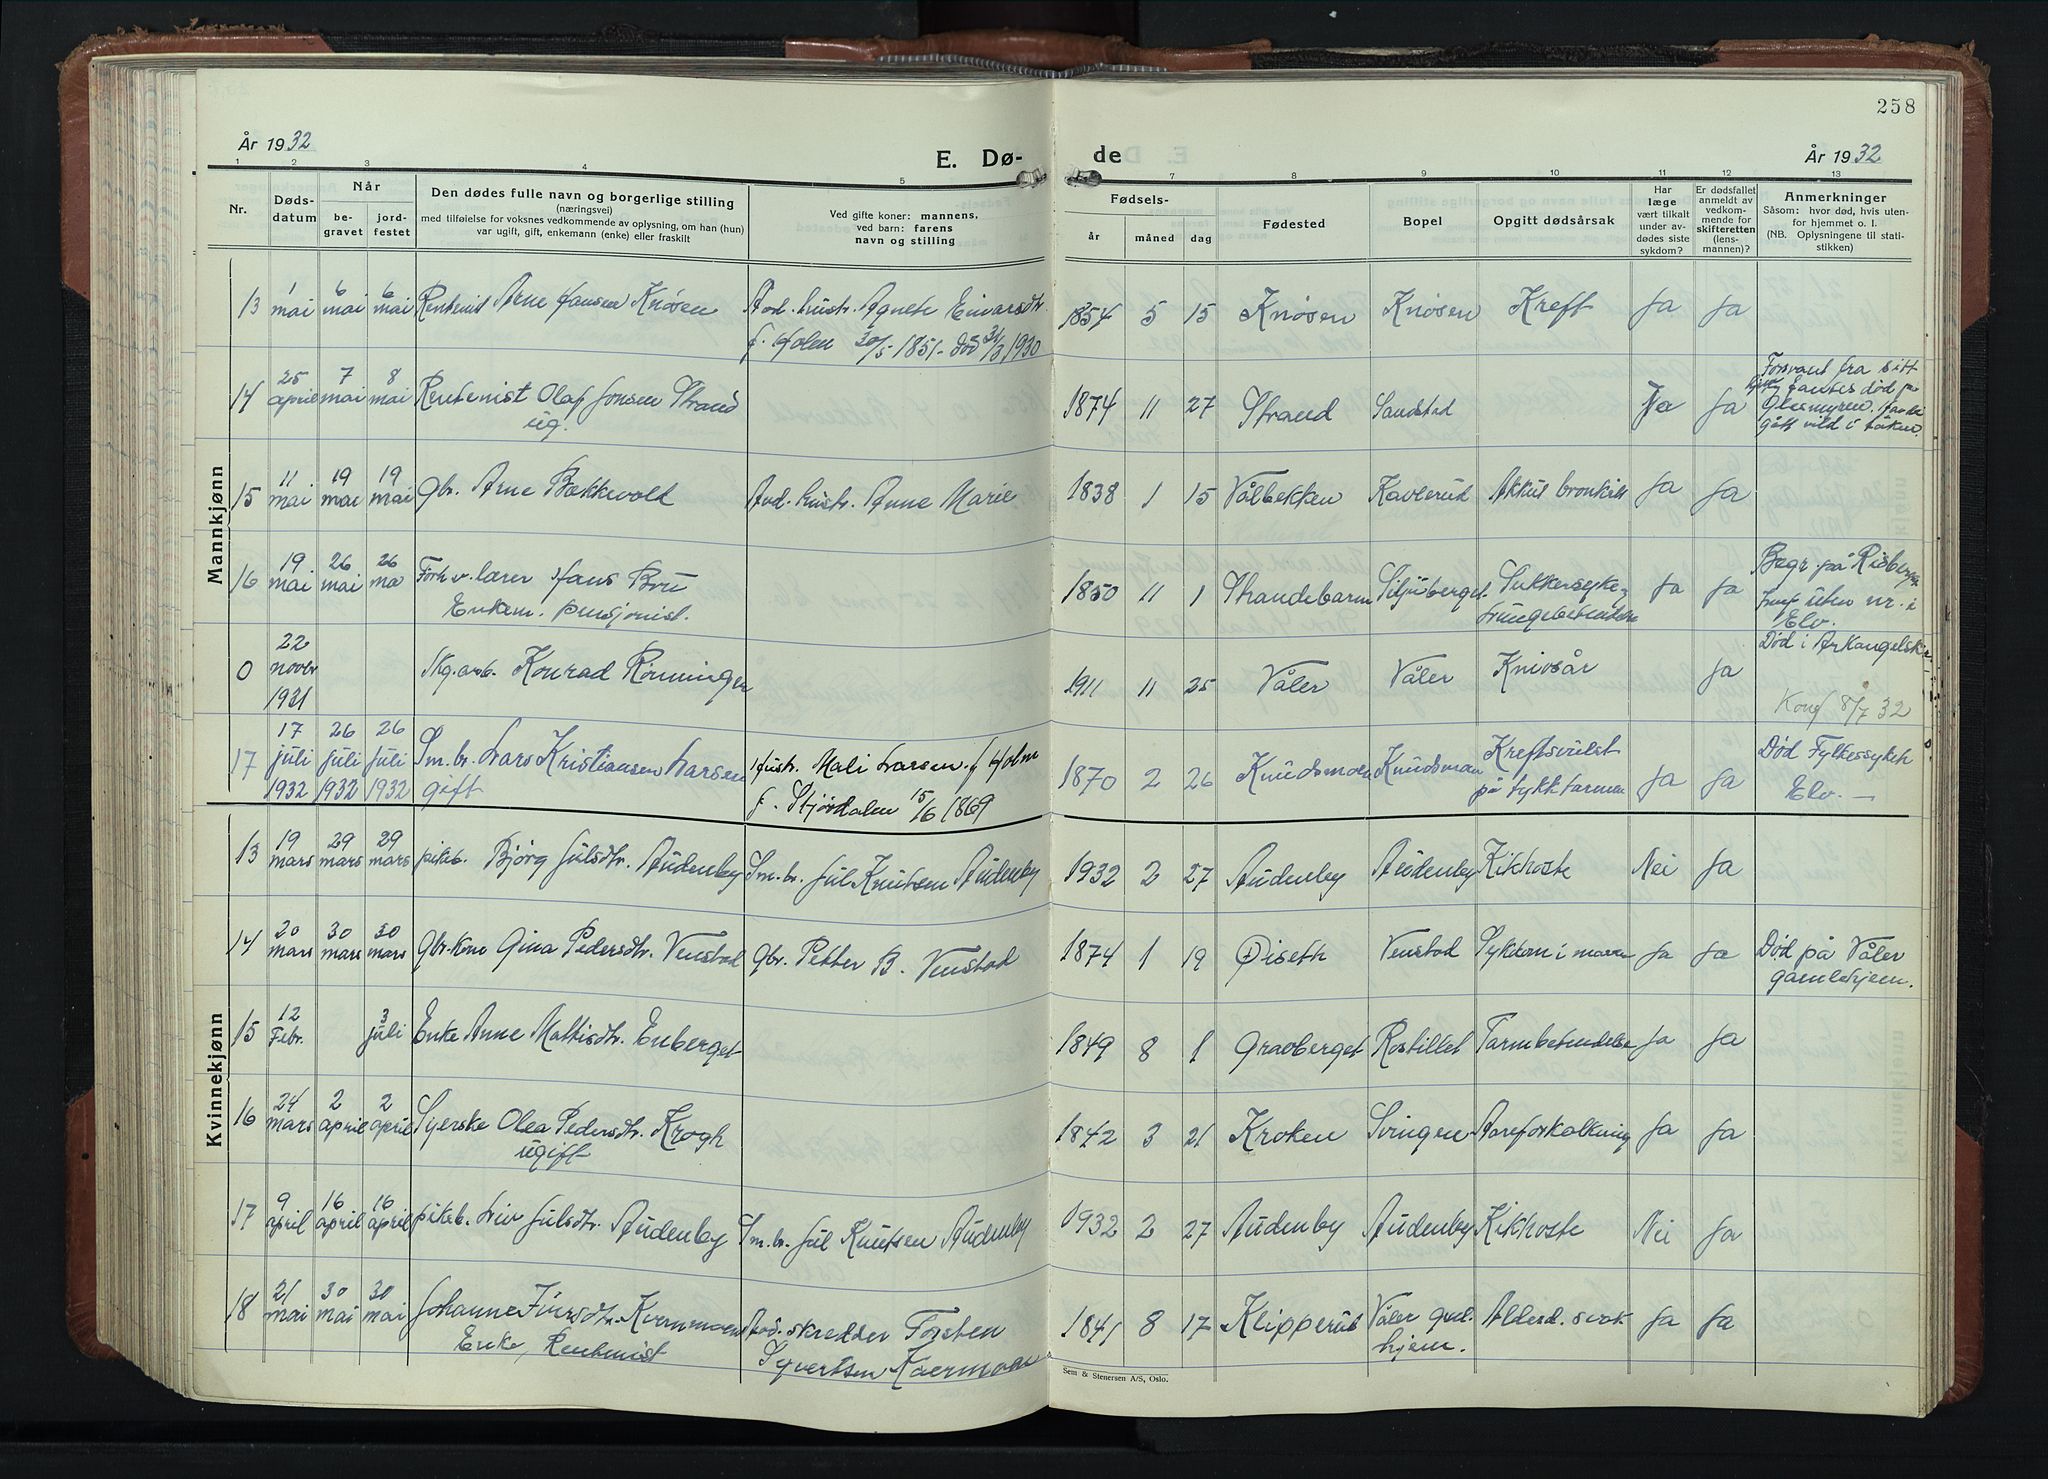 258
År 1932
E. Dø-
de
År 1932
1 2 3 4 5 7 8 9 10 11 12 13
Nr.
Døds-
datum
Når
be-
gravet
jord-
festet
Den dødes fulle navn og borgerlige stilling
(næringsvei)
med tilføielse for voksnes vedkommende av oplysning, om han (hun)
var ugift, gift, enkemann (enke) eller fraskilt
Ved gifte koner: mannens,
ved barn: farens
navn og stilling
Fødsels-
år måned dag
Fødested
Bopel
Opgitt dødsårsak
Har
læge
vært tilkalt
under av-
dødes siste
sykdom?
Er dødsfallet
anmeldt av
vedkom-
mende for
skifteretten
(lens-
mannen)?
Anmerkninger
Såsom: hvor død, hvis uten-
for hjemmet o. l.
(NB. Oplysningene til stati-
stikken)
Mannkjønn
13 1 mai 6 mai 6 mai Rentenist Arne Hansen Knøsen Avd. hustr. Agnete Einarsdtr. 1854 5 15 Knøsen Knøsen Kreft Ja Ja
f. Holen 30/5-1851- død 31/3 1930
14 25 april 7 mai 8 mai Rentenist Olaf Jonsen Strand 1874 11 27 Strand Sandstad Nei Ja Forsvant fra sitt
ug. hjem, fantes død på
gått vild i tåken.
15 11 mai 19 mai 19 mai Gbr. Arne Bækkevold Avd. hustr. Anne Marie 1838 1 15 Vålbekken Kavlerud Akkut bronkitt Ja Ja
16 19 mai 26 mai 26 ma Forh.v. lærer Hans Bru 1850 11 1 Strandebarm Siljuberget Sukkersyke, Ja Ja Begr. på Risberget
Enkem. pensjonist. Lungebetendelse uten nr. i
Elv.
0 22 novbr 1931 Skg.arb. Konrad Rønningen 1911 11 25 Våler Våler Knivsår Ja Død i Arkangelsk
8/7 32
17 17 juli 1932 26 juli 1932 26 juli 1932 Sm.br. Lars Kristiansen Larsen Hustr. Mali Larsen f. Holm 1870 2 26 Knudsmoen Knudsmoen Kreftsvulst Ja Ja Død Fylkessykeh
gift f. Stjørdalen 15/6 1869 på tykktarmen Elv. —
Kvinnekjønn
13 19 mars 29 mars 29 mars pikeb. Bjørg Julsdtr. Audenby Sm.br. Jul Knutsen Audenby 1932 2 27 Audenby Audenby Kikhoste Nei Ja
14 20 mars 30 mars 30 mars Gbr.kone Gina Pedersdtr. Venstad Gbr. Petter B. Venstad 1874 1 19 Øiseth Venstad Sykdom i maven Ja Ja Død på Våler
gamlehjem.
15 12 Febr. 3 juli Enke Anne Mattisdtr. Enberget 1849 8 1 Gravberget Rostillet Tarmbetendelse Ja Ja
16 24 mars 2 april 2 april Syerske Olea Pedersdtr. Krogh 1842 3 21 Kroken Svingen Aareforkalkning Ja Ja
ugift
17 9 april 16 april 16 april pikeb. Liv Julsdtr. Audenby Sm.br. Jul Knutsen Audenby 1932 2 27 Audenby Audenby Kikhoste Nei Ja
18 21 mai 30 mai 30 mai Johanne Iversdtr. Kvernmoen Avd. skredder Torsten 1841 8 17 Klipperud Våler gml. Alderd. svak. Ja Ja
Enke, Rentenist Syvertsen Kvernmoen hjem.
Sem & Stenersen A/S, Oslo.